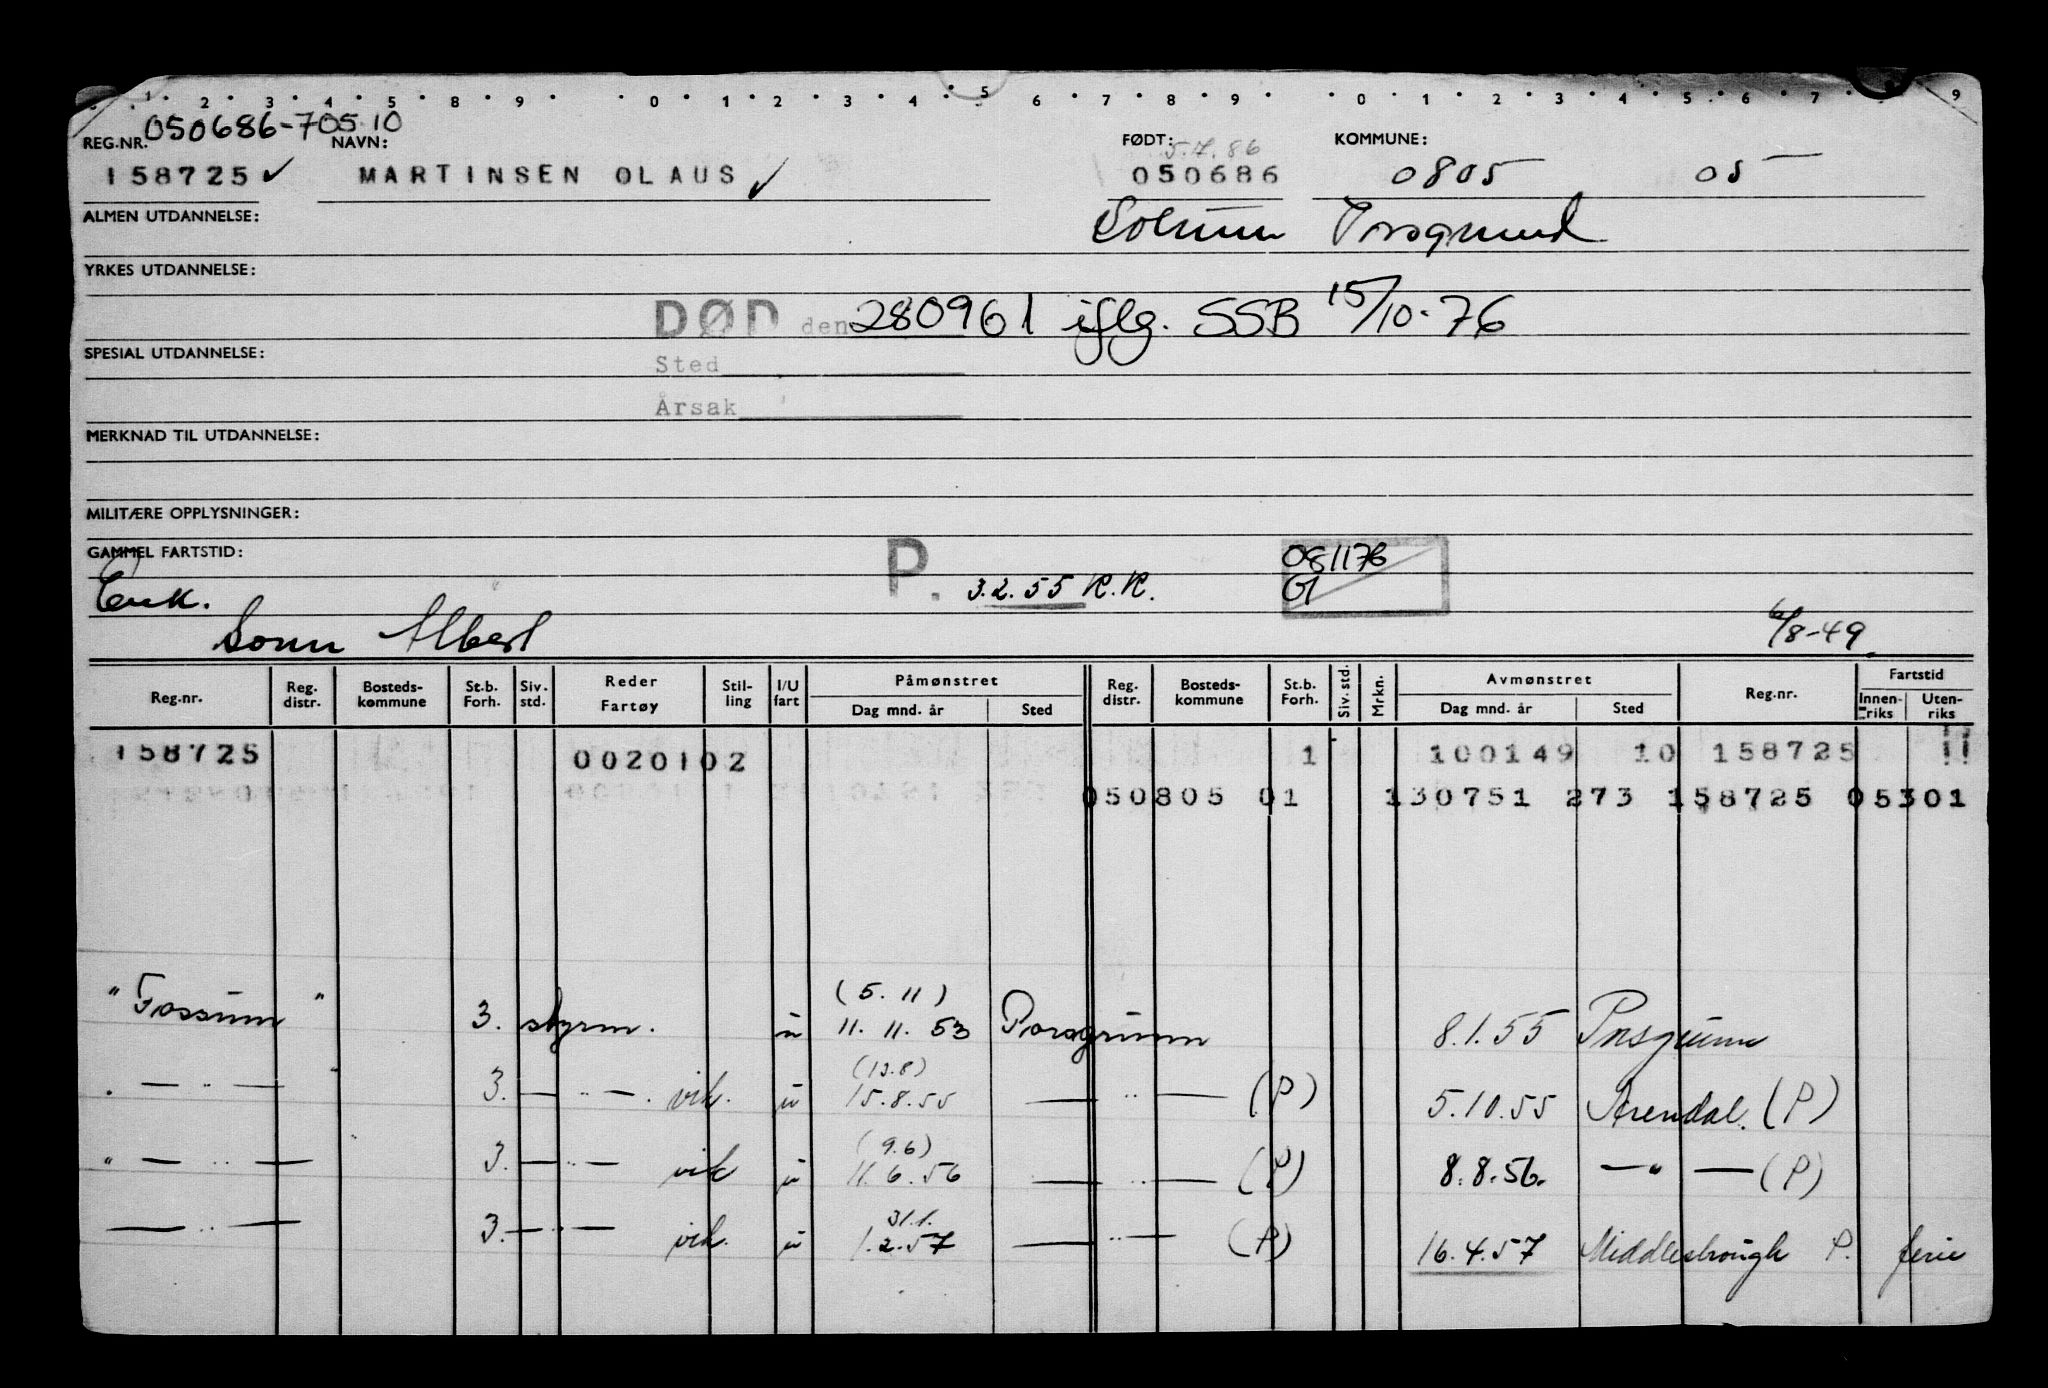 1 2 3 4 5 8 9 0 1 2 3 4 5 6 7 8 9 0 1 2 3 4 5 6 7 9
050686-70510
REG.NR. NAVN: FØDT: KOMMUNE:
5.7.86
158725 ✓ MARTINSEN OLAUS ✓ 050686 0805 05
ALMEN UTDANNELSE: Solum Porsgrund
YRKES UTDANNELSE:
DØD den 280961 iflg. SSB 15/10-76
SPESIAL UTDANNELSE: Sted
Årsak
MERKNAD TIL UTDANNELSE:
MILITÆRE OPPLYSNINGER:
GAMMEL FARTSTID: P. 3.2.55 R.R. 081176
Enk. GI
Sønn Albert 6/8-49.
Reg.nr. Reg. distr. Bosteds-kommune St.b. Forh. Siv. std. Reder Fartøy Stil-ling I/U fart Påmønstret Dag mnd. år Sted Reg. distr. Bosteds-kommune St.b. Forh. Siv. std. Mrkn. Avmønstret Dag mnd. år Sted Reg.nr. Fartstid Innen-riks Uten-riks
158725 0020102 1 100149 10 158725 !!
050805 01 130751 273 158725 05301
(5.11)
"Fossum" 3. styrm. u 11.11.53 Porsgrunn 8.1.55 Porsgrunn
(13.8)
— " — 3. — " — . vik. u 15.8.55 — " — (P) 5.10.55 Arendal. (P)
(9.6)
" — " — 3. — " — vik u 11.6.56 — " — (P) 8.8.56. — " — (P)
31.1.
— " — 3. — " — vik. u 1.2.57 — " — (P) 16.4.57 Middlesbrough P. ferie